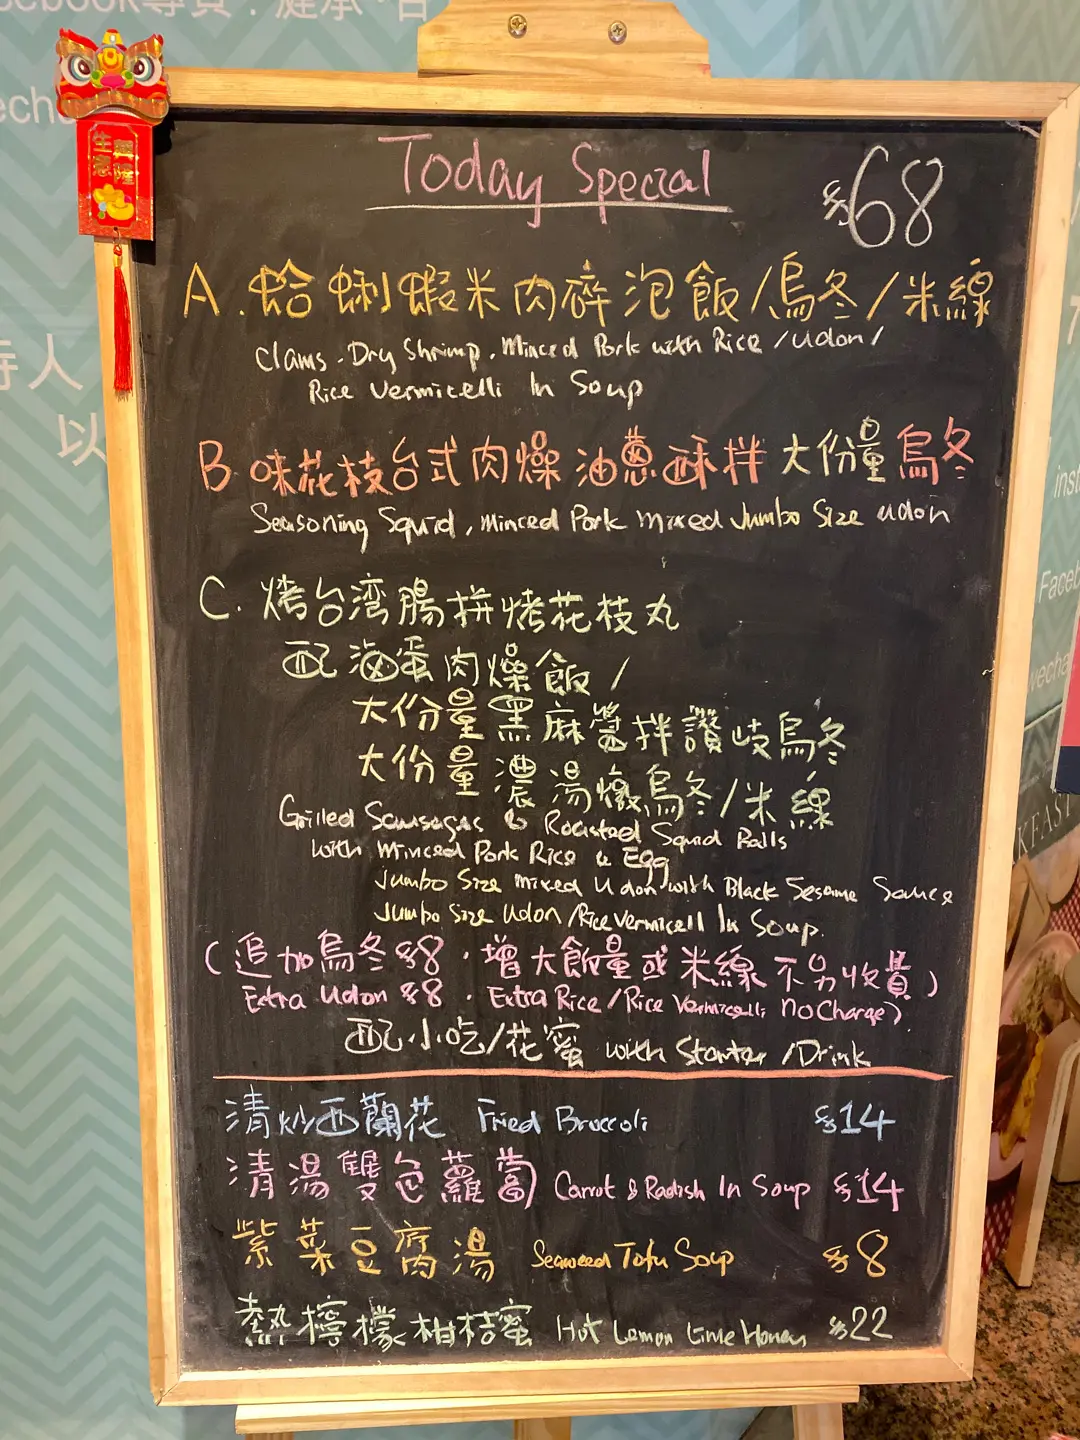 生意興隆
Today Special
$68
A. 蛤蜊蝦米肉碎泡飯/烏冬/米線
Clams. Dry Shrimp. Minced Pork with Rice/Udon/
Rice Vermicelli In Soup
B. 味花枝台式肉燥油蔥酥拌大份量烏冬
Seasoning Squid, Minced Pork mixed Jumbo Size udon
C. 烤台湾腸拼烤花枝丸
配滷蛋肉燥飯/
大份量黑麻醬拌讚岐烏冬
大份量濃湯燉烏冬/米線
Grilled Sausages & Roasted Squid Balls
with Minced Pork Rice & Egg
Jumbo Size mixed Udon with Black Sesame Sauce
Jumbo Size Udon/Rice Vermicelli In Soup.
(追加烏冬$8．增大飯量或米線不另收費)
Extra Udon $8. Extra Rice/Rice Vermicelli no Charge)
配小吃/花蜜 with Starter/Drink
清炒西蘭花 Fried Broccoli $14
清湯雙色蘿蔔 Carrot & Radish In Soup $14
紫菜豆腐湯 Seaweed Tofu Soup $8
熱檸檬柑桔蜜 Hot Lemon Lime Honey $22